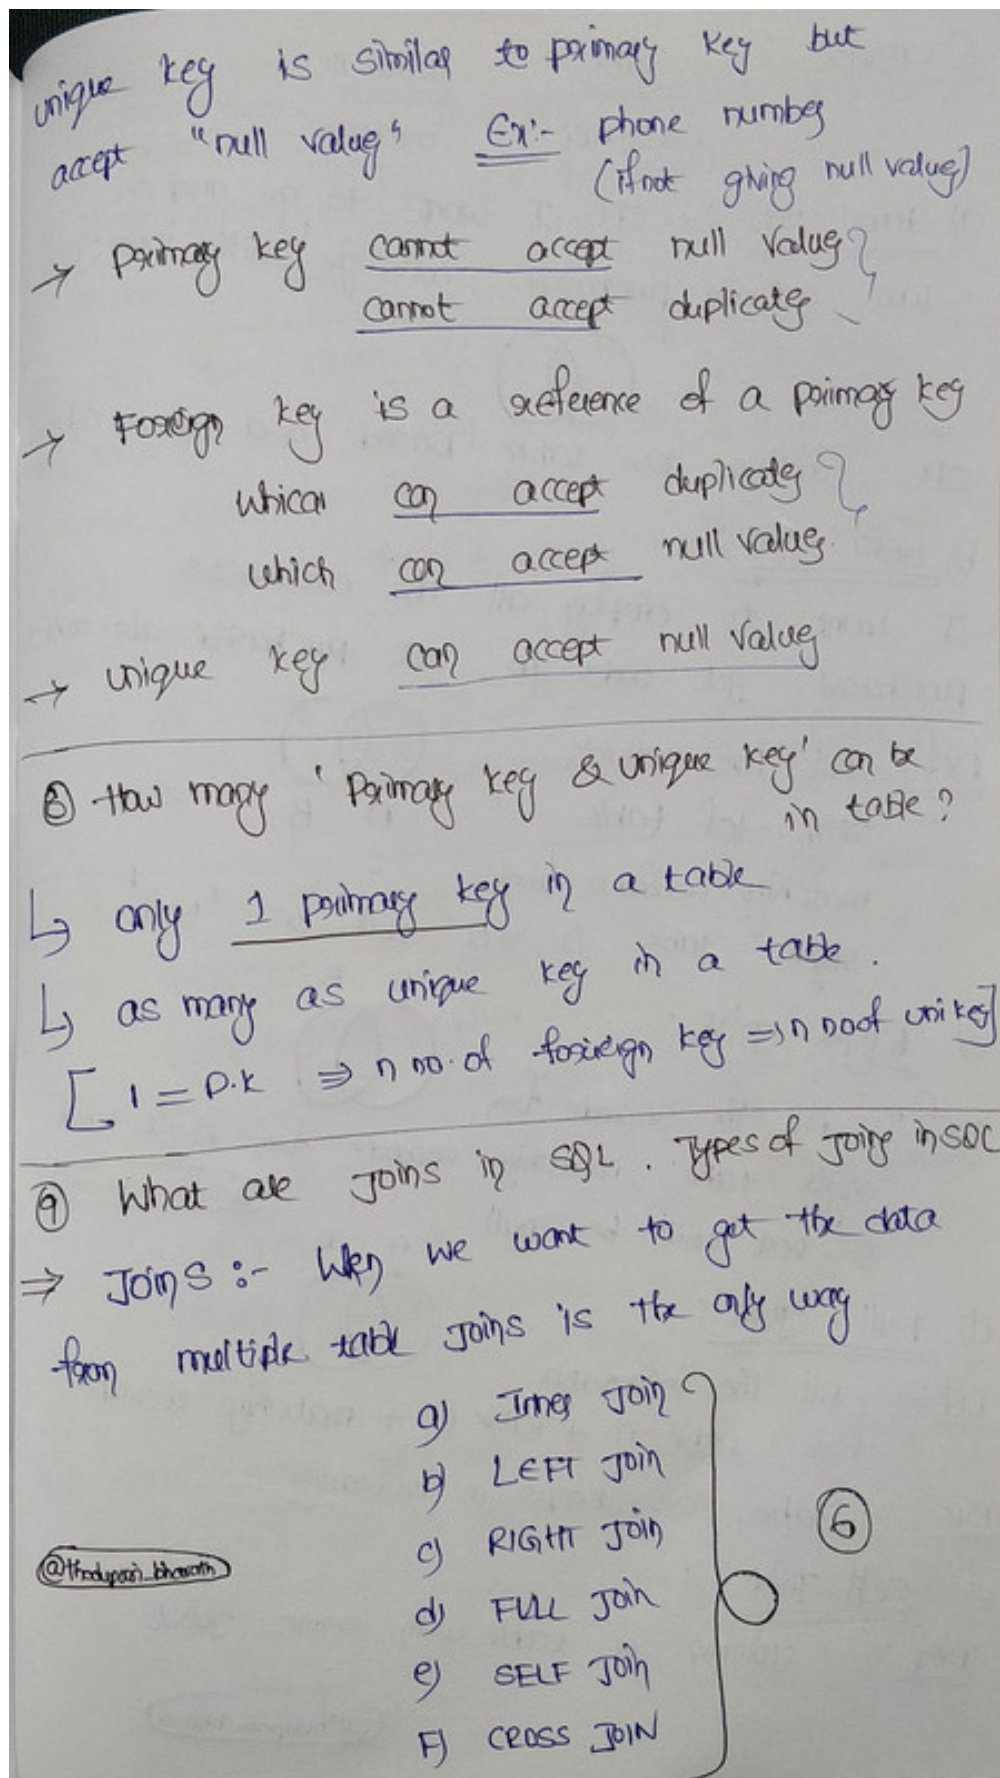 unique key is similar to primary key but
accept "null values" Ex:- phone number
(if not giving null values)
→ primary key cannot accept null values
cannot accept duplicates
→ Foreign key is a reference of a primary key
which can accept duplicates
which can accept null values.
→ unique key can accept null values
⑧ How many 'Primary key & unique key' can be
in table?
↳ only 1 primary key in a table
↳ as many as unique key in a table.
[1 = P.K ⇒ n no. of foreign key ⇒ n no of uni key]
⑨ What are Joins in SQL. Types of Joins in SQL
⇒ Joins :- When we want to get the data
from multiple table Joins is the only way
a) Inner Join
b) LEFT Join
c) RIGHT Join
⑥
@thoduparri_bharath
d) FULL Join
e) SELF Join
F) CROSS JOIN